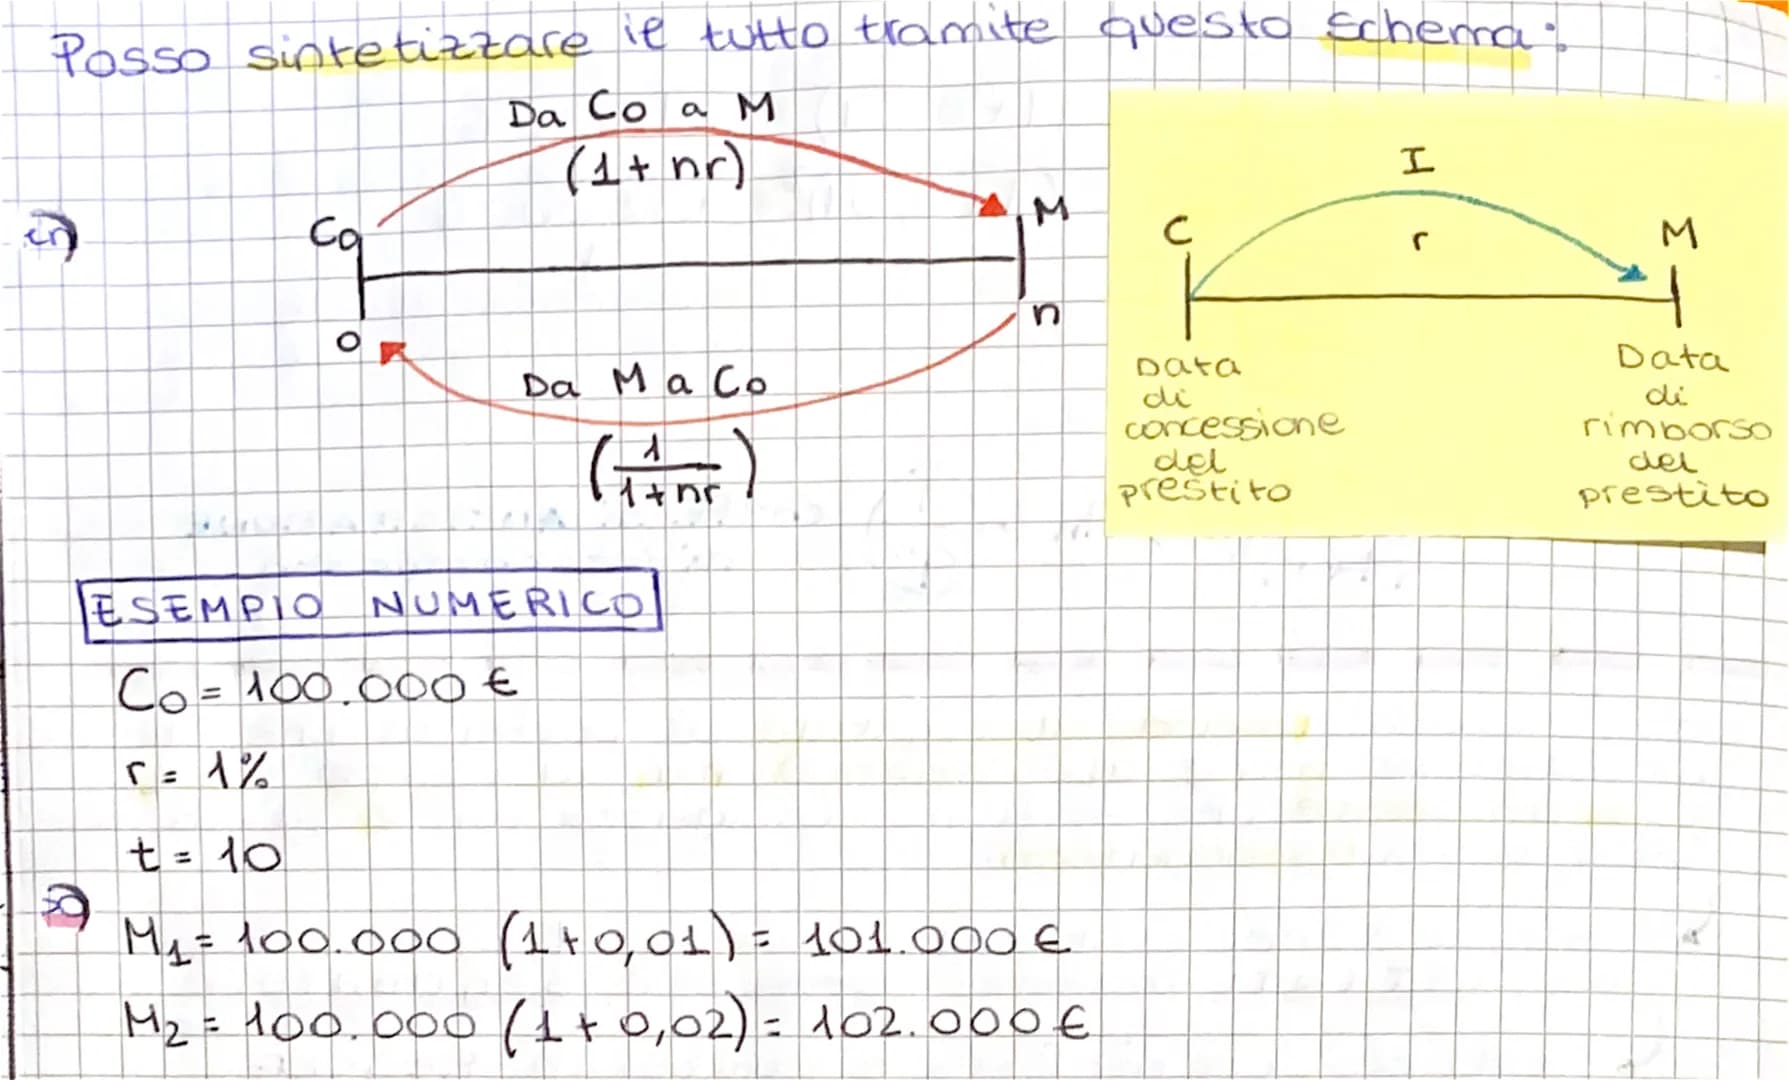 Posso sintetizzare il tutto tramite questo schema:
Da C0 a M
(1 + nr)
C0
M
0
n
Da M a C0
(1/1+nr)
I
r
C
M
Data
di
concessione
del
prestito
Data
di
rimborso
del
prestito
ESEMPIO NUMERICO
C0 = 100.000 €
r = 1%
t = 10
M1 = 100.000 (1+0,01) = 101.000 €
M2 = 100.000 (1 + 0,02) = 102.000 €